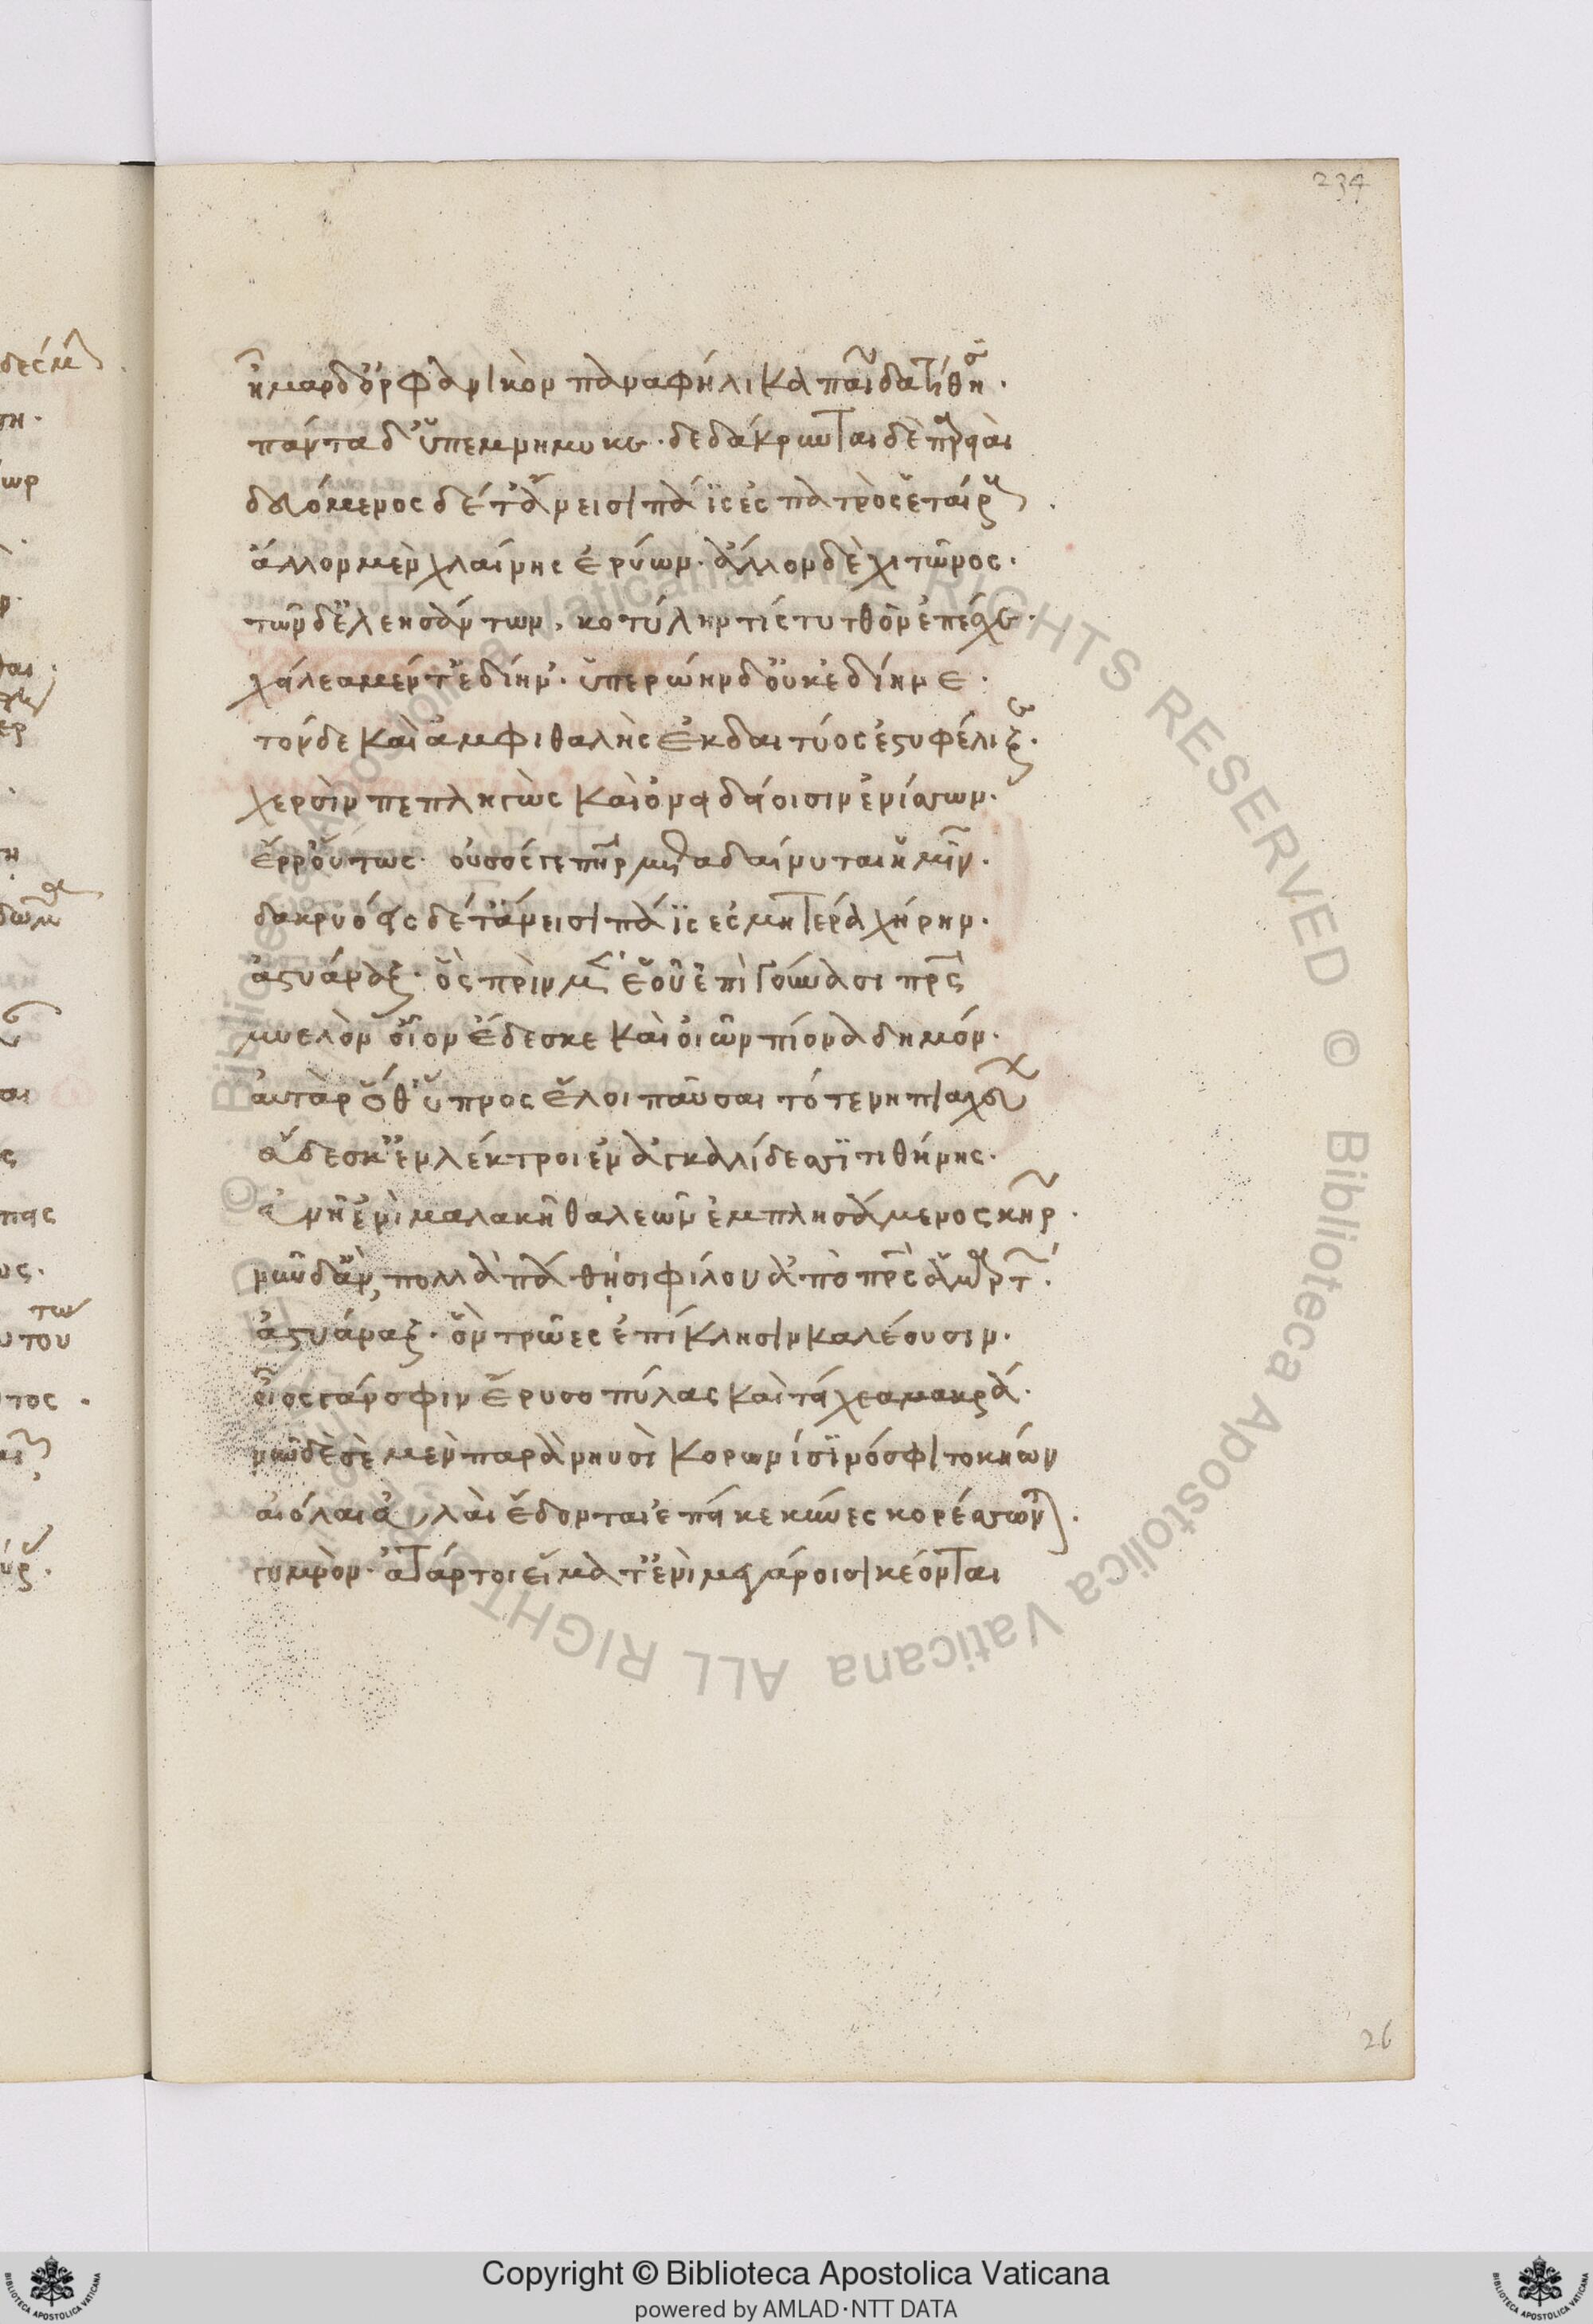 234
ἦμαρ δ' ὀρφανικὸν παναφήλικα παῖδα τίθησ.
πάντα δ' ὑπεμνήμυκε. δεδάκρυνται δὲ παρειαὶ
δευόμενος δέ τ' ἄνεισι πάϊς ἐς πατρὸς ἑταίρους.
ἄλλον μὲν χλαίνης ἐρύων. ἄλλον δὲ χιτῶνος.
τῶν δ' ἐλεησάντων, κοτύλην τίς τυτθὸν ἐπέσχε.
χείλεα μέν τ' ἐδίην'. ὑπερώην δ' οὐκ ἐδίηνε.
τόνδε καὶ ἀμφιθαλὴς ἐκ δαιτύος ἐστυφέλιξε.
χερσὶν πεπληγὼς καὶ ὀνειδείοισιν ἐνίσσων.
ἔρρ' οὕτως. οὐ σός γε πηρ μεταδαίνυται ἡμῖν.
δακρυόεις δέ τ' ἄνεισι πάϊς ἐς μητέρα χήρην.
ἀστυάναξ. ὃς πρὶν μὲν ἑοῦ ἐπὶ γούνασι πρς
μυελὸν οἶον ἔδεσκε καὶ οἰῶν πίονα δημόν.
αὐτὰρ ὅθ' ὕπνος ἕλοι παύσαιτό τε νηπιαχεύ
εὕδεσκ' ἐν λέκτροι ἐν ἀγκαλίδεσσϊ τιθήνης.
εὐνῆ ἐνὶ μαλακῆ θαλεῶν ἐμπλησάμενος κῆρ.
νῦν δ' ἂν πολλὰ πάθησι φίλου ἀπὸ πρς ἁμαρτ.
ἀστυάναξ. ὃν τρῶες ἐπίκλησιν καλέουσιν.
οἶος γάρ σφιν ἔρυσο πύλας καὶ τείχεα μακρά.
νῦν δὲ σὲ μὲν παρὰ νηυσὶ κορωνίσϊ νόσφι τοκήων
αἰόλαι εὐλαὶ ἔδονται ἐπεί κε κύνες κορέσσων.
γυμνὸν. ἀτάρ τοι εἵματ' ἐνὶ μεγάροισι κέονται
26
© Biblioteca Apostolica Vaticana ALL RIGHTS RESERVED © Biblioteca Apostolica Vaticana ALL RIGHT
Copyright © Biblioteca Apostolica Vaticana
powered by AMLAD·NTT DATA